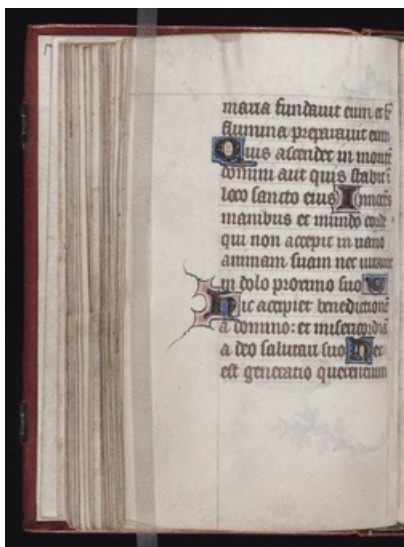 maria fundauit eum et sr
flumina preparauit eum
Quis ascendet in monte
domini aut quis stabit i
loco sancto eius Innocēs
manibus et mundo corde
qui non accepit in uano
animam suam nec iurauit
in dolo proximo suo
Hic accipiet benedictionē
a domino: et misericordiā
a deo salutari suo Hec
est generatio querentium